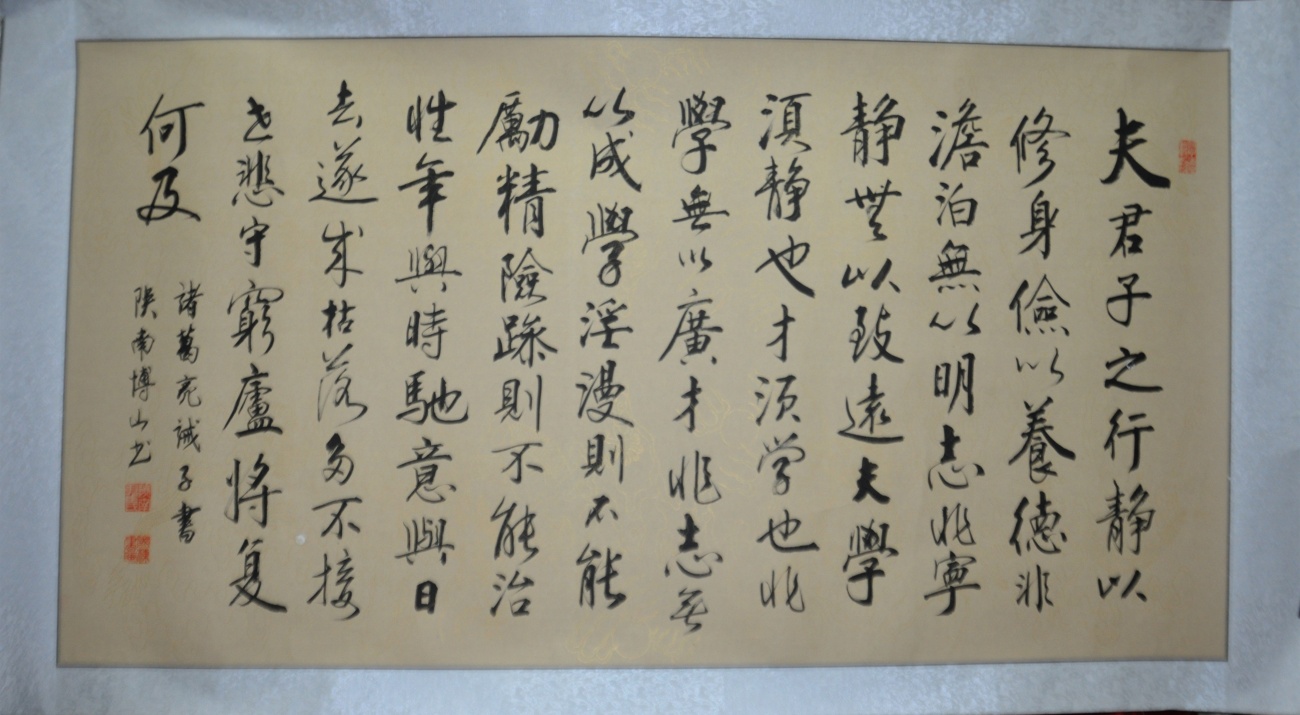 夫君子之行静以
修身儉以養德非
澹泊無以明志非寧
静無以致遠夫學
須静也才須学也非
學無以廣才非志无
以成學淫漫則不能
勵精險躁則不能治
性年與時馳意與日
去遂成枯落多不接
世悲守窮廬將复
何及
諸葛亮诫子書
陕南博山书